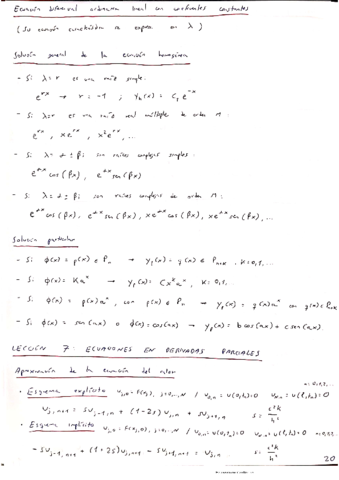 Ecuación diferencial ordinaria lineal con coeficientes constantes
(Su ecuación característica se expresa en λ)
Solución general de la ecuación homogénea
- Si λ=r es una raíz simple.
e^{rx} → r = -1 ; y_h(x) = c_1 e^{-x}
- Si λ=r es una raíz real múltiple de orden M:
e^{rx}, xe^{rx}, x²e^{rx}, ...
- Si λ = α ± βi son raíces complejas simples:
e^{αx} cos(βx), e^{αx} sen(βx)
- Si λ = α ± βi son raíces complejas de orden M:
e^{αx} cos(βx), e^{αx} sen(βx), xe^{αx} cos(βx), xe^{αx} sen(βx), ...
Solución particular
- Si ϕ(x) = p(x) ∈ P_n → y_p(x) = q(x) ∈ P_{n+k}, k=0,1,...
- Si ϕ(x) = Ka^x → y_p(x) = Cx^k a^x, k=0,1,...
- Si ϕ(x) = p(x)a^x, con p(x) ∈ P_n → y_p(x) = q(x)a^x con q(x) ∈ P_{n+k}
- Si ϕ(x) = sen(ax) o ϕ(x)=cos(ax) → y_p(x) = b cos(ax) + c sen(ax)
LECCIÓN 7: ECUACIONES EN DERIVADAS PARCIALES
Aproximación de la ecuación del calor
n=0,1,2,...
• Esquema explícito u_{j,0} = F(x_j), j=0,...,N / u_{0,n} = u(0,t_n)=0 u_{N,n} = u(l,t_n)=0
U_{j,n+1} = SU_{j-1,n} + (1-2s)U_{j,n} + SU_{j+1,n} s = c²k/h²
• Esquema implícito u_{j,0} = F(x_j,0), j=0,...,N / u_{0,n} = u(0,t_n)=0 u_{N,n} = u(l,t_n)=0 n=0,1,2,...
-SU_{j-1,n+1} + (1+2s)U_{j,n+1} - SU_{j+1,n+1} = U_{j,n} s = c²k/h²
20